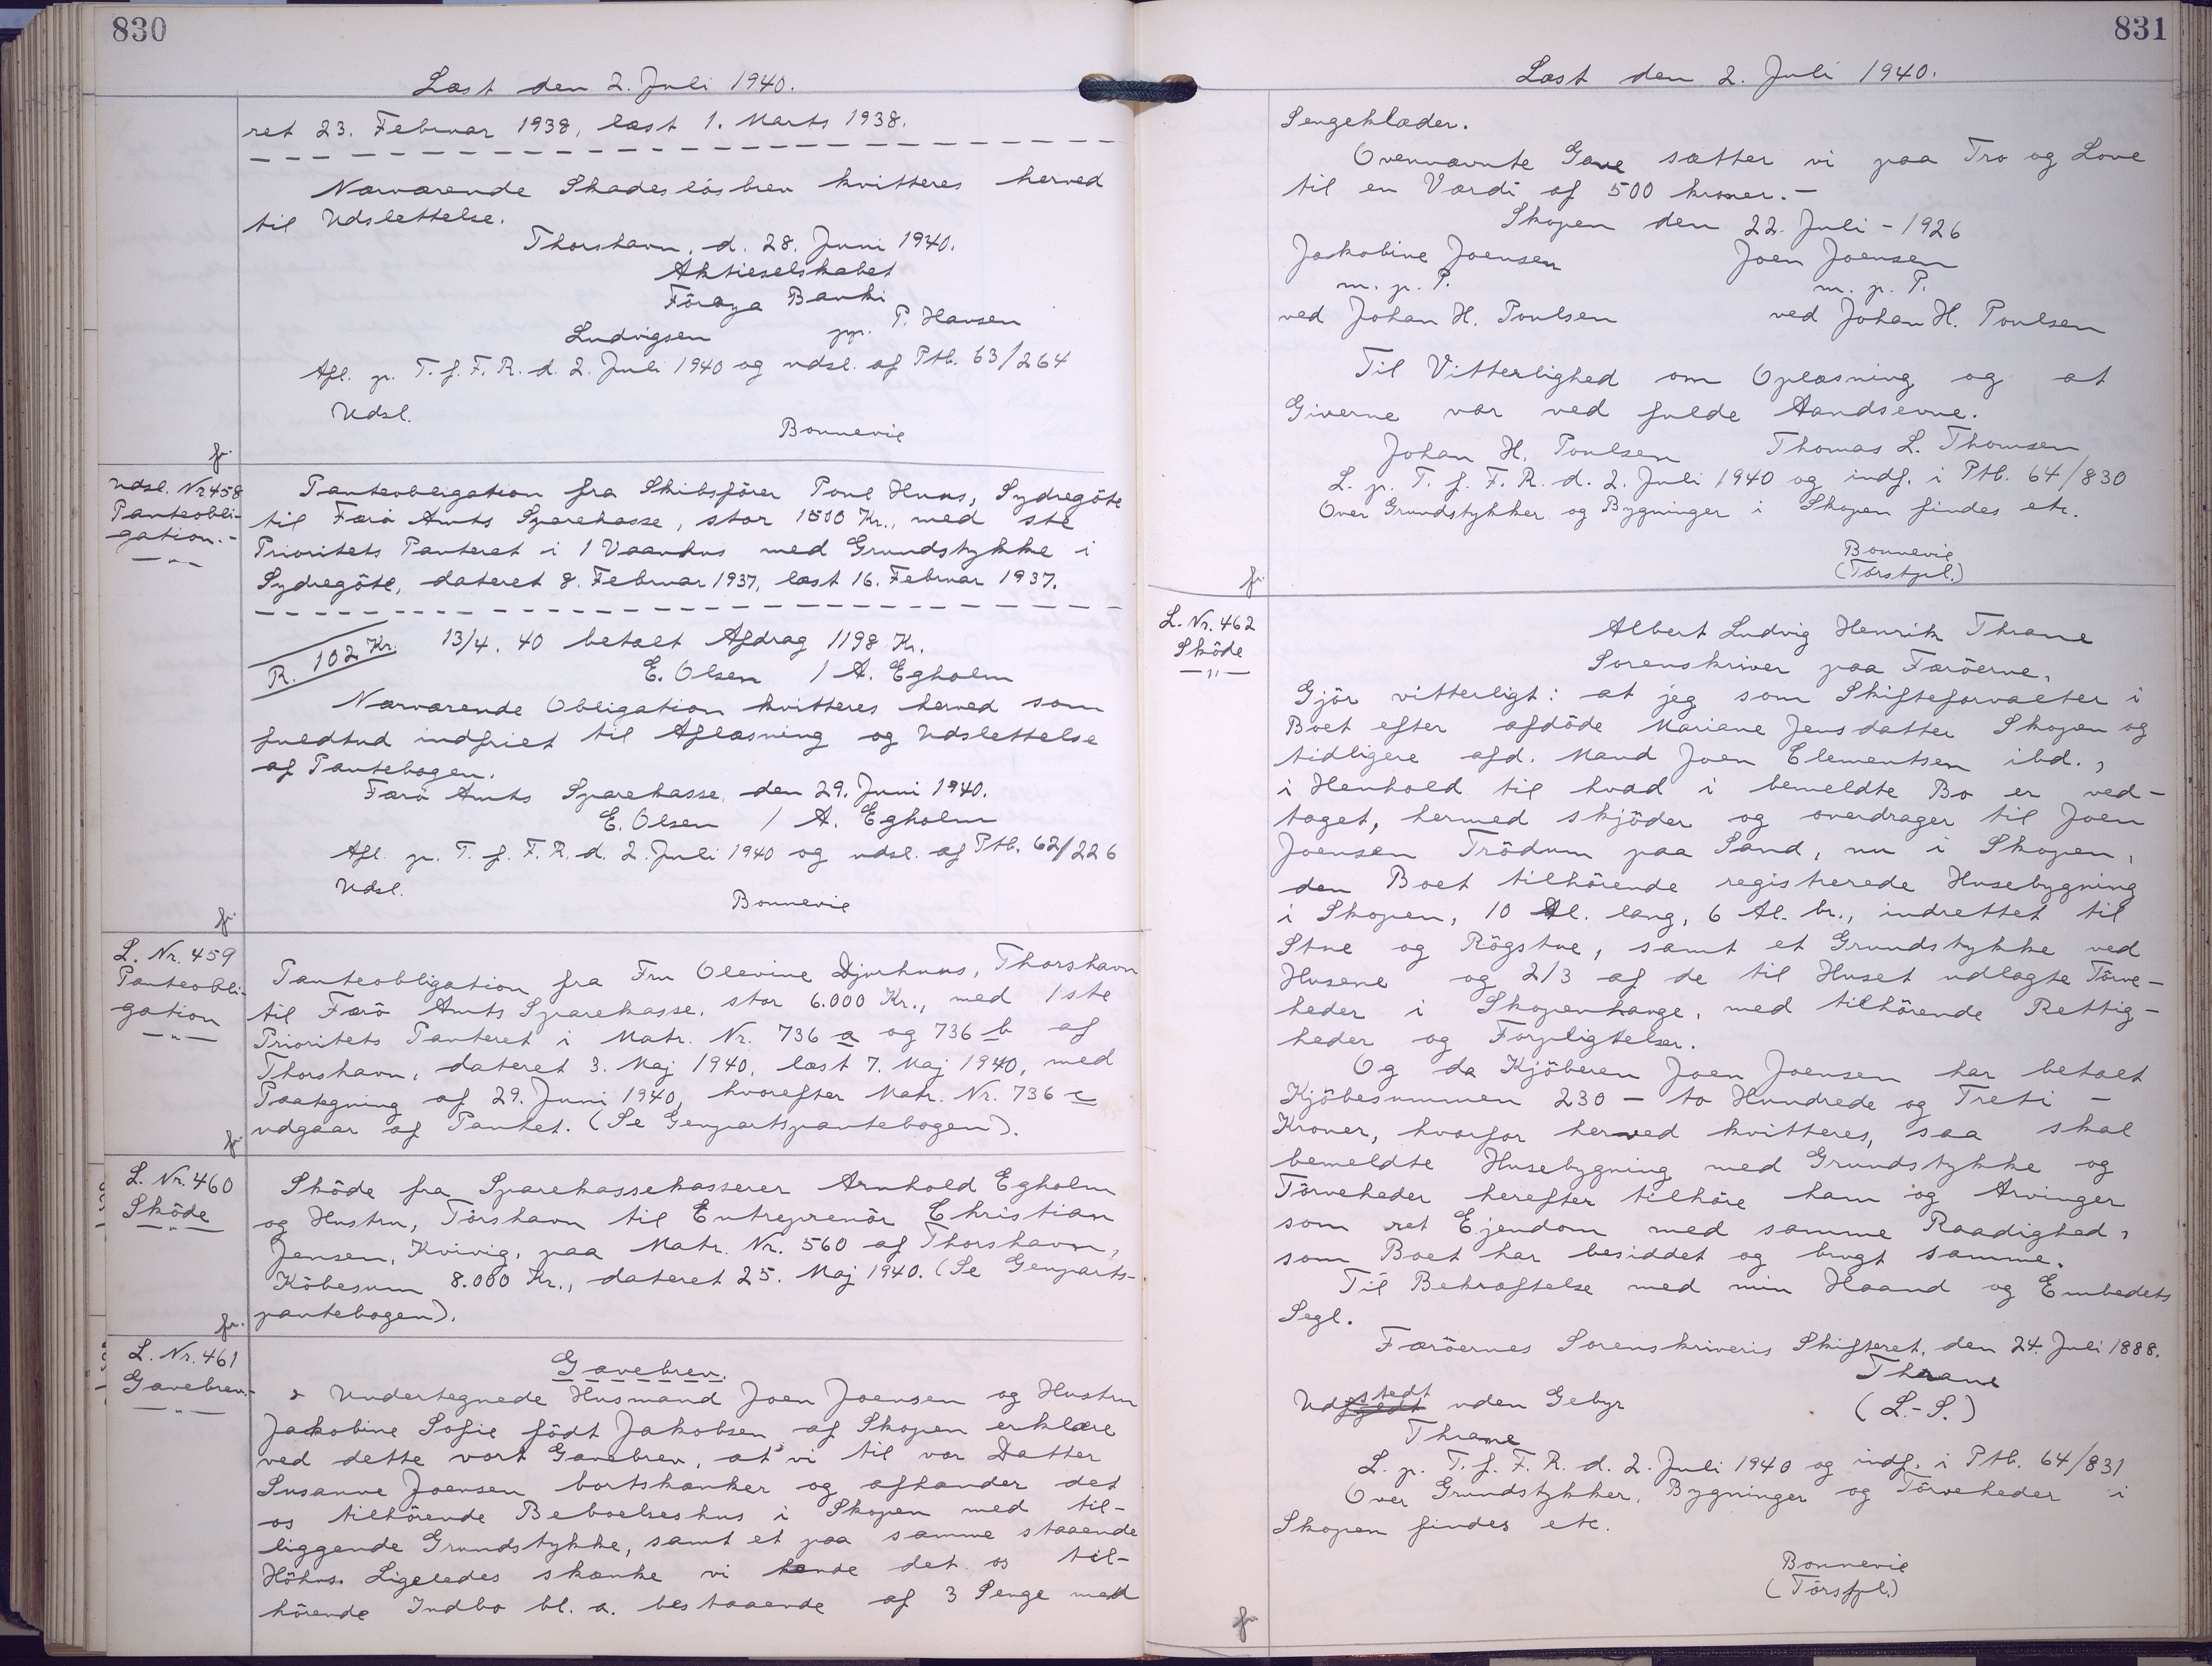 830
Læst den 2. Juli 1940.
ret 23. Februar 1938, læst 1. Marts 1938.
Nærværende Skadeslösbrev kvitteres herved
til Udslettelse.
Thorshavn, d. 28. Juni 1940.
Aktieselskabet
Föroya Banki
Ludvigsen pp. P. Hansen
Afl. p. T. f. F. R. d. 2. Juli 1940 og udsl. af Ptb. 63/264
Udsl.
Bonnevie
fr.
Udsl. Nr 458
Panteobli-
gation.-
Panteobligation fra Skibsförer Poul Huus, Sydregöte
til Færö Amts Sparekasse, stor 1500 Kr., med ste
Prioritets Panteret i 1 Vaanhus med Grundstykke i
Sydregöte, dateret 8. Februar 1937, læst 16. Februar 1937.
R. 102 Kr. 13/4. 40 betalt Afdrag 1198 Kr.
E. Olsen / A. Egholm
Nærværende Obligation kvitteres herved som
fuldtud indfriet til Aflæsning og Udslettelse
af Pantebogen.
Færö Amts Sparekasse, den 29. Juni 1940.
E. Olsen / A. Egholm
Afl. p. T. f. F. R. d. 2. Juli 1940 og udsl. af Ptb. 62/226
Udsl.
Bonnevie
fr.
L. Nr. 459
Panteobli-
gation
Panteobligation fra Fru Olevine Djurhuus, Thorshavn
til Færö Amts Sparekasse, stor 6.000 Kr., med 1ste
Prioritets Panteret i Matr. Nr. 736 a og 736 b af
Thorshavn, dateret 3. Maj 1940, læst 7. Maj 1940, med
Paategning af 29. Juni 1940, hvorefter Matr. Nr. 736 c
udgaar af Pantet. (Se Genpartspantebogen).
fr.
L. Nr. 460
Sköde
Sköde fra Sparekassekasserer Arnhold Egholm
og Hustru, Tórshavn til Entreprenör Christian
Jensen, Kvivig, paa Matr. Nr. 560 af Thorshavn,
Köbesum 8.000 Kr., dateret 25. Maj 1940. (Se Genparts-
pantebogen).
fr.
L. Nr. 461
Gavebrev.-
Gavebrev.
Undertegnede Husmand Joen Joensen og Hustru
Jakobine Sofie födt Jakobsen af Skopen erklære
ved dette vort Gavebrev, at vi til vor Datter
Susanne Joensen bortskænker og afhænder det
os tilhörende Beboelseshus i Skopen med til-
liggende Grundstykke, samt et paa samme staaende
Höhus. Ligeledes skænke vi hende det os til-
hörende Indbo bl. a. bestaaende af 3 Senge med
831
Læst den 2. Juli 1940.
Sengeklæder.
Ovennævnte Gave sætter vi paa Tro og Love
til en Værdi af 500 kroner.-
Skopen den 22. Juli - 1926
Jackobine Joensen Joen Joensen
m. p. P. m. p. P.
ved Johan H. Poulsen ved Johan H. Poulsen
Til Vitterlighed om Oplæsning og at
Giverne var ved fulde Aandsevne.
Johan H. Poulsen Thomas L. Thomsen
L. p. T. f. F. R. d. 2. Juli 1940 og indf. i Ptb. 64/830
Over Grundstykker og Bygninger i Skopen findes etc.
Bonnevie
(Tórstpl.)
fr.
L. Nr. 462
Sköde
Albert Ludvig Henrik Thrane
Sorenskriver paa Færöerne,
Gjör vitterligt: at jeg som Skifteforvalter i
Boet efter afdöde Mariane Jensdatter Skopen og
tidligere afd. Mand Joen Clementsen ibd.,
i Henhold til hvad i bemeldte Bo er ved-
taget, hermed skjöder og overdrager til Joen
Joensen Trödum paa Sand, nu i Skopen,
den Boet tilhörende registrerede Husebygning
i Skopen, 10 Al. lang, 6 Al. br., indrettet til
Stue og Rögstue, samt et Grundstykke ved
Husene og 2/3 af de til Huset udlagte Törve-
heder i Skopenhauge, med tilhörende Rettig-
heder og Forpligtelser.
Og da Kjöberen Joen Joensen har betalt
Kjöbesummen 230 - to Hundrede og Treti -
Kroner, hvorfor herved kvitteres, saa skal
bemeldte Husebygning med Grundstykke og
Törveheder herefter tilhöre ham og Arvinger
som ret Ejendom med samme Raadighed,
som Boet har besiddet og brugt samme.
Til Bekræftelse med min Haand og Embedets
Segl.
Færöernes Sorenskriveris Skifteret, den 24. Juli 1888.
Thrane
Udstedt uden Gebyr (L.-S.)
Thrane
L. p. T. f. F. R. d. 2. Juli 1940 og indf. i Ptb. 64/831
Over Grundstykker, Bygninger og Törveheder i
Skopen findes etc.
Bonnevie
(Tórsfpl.)
fr